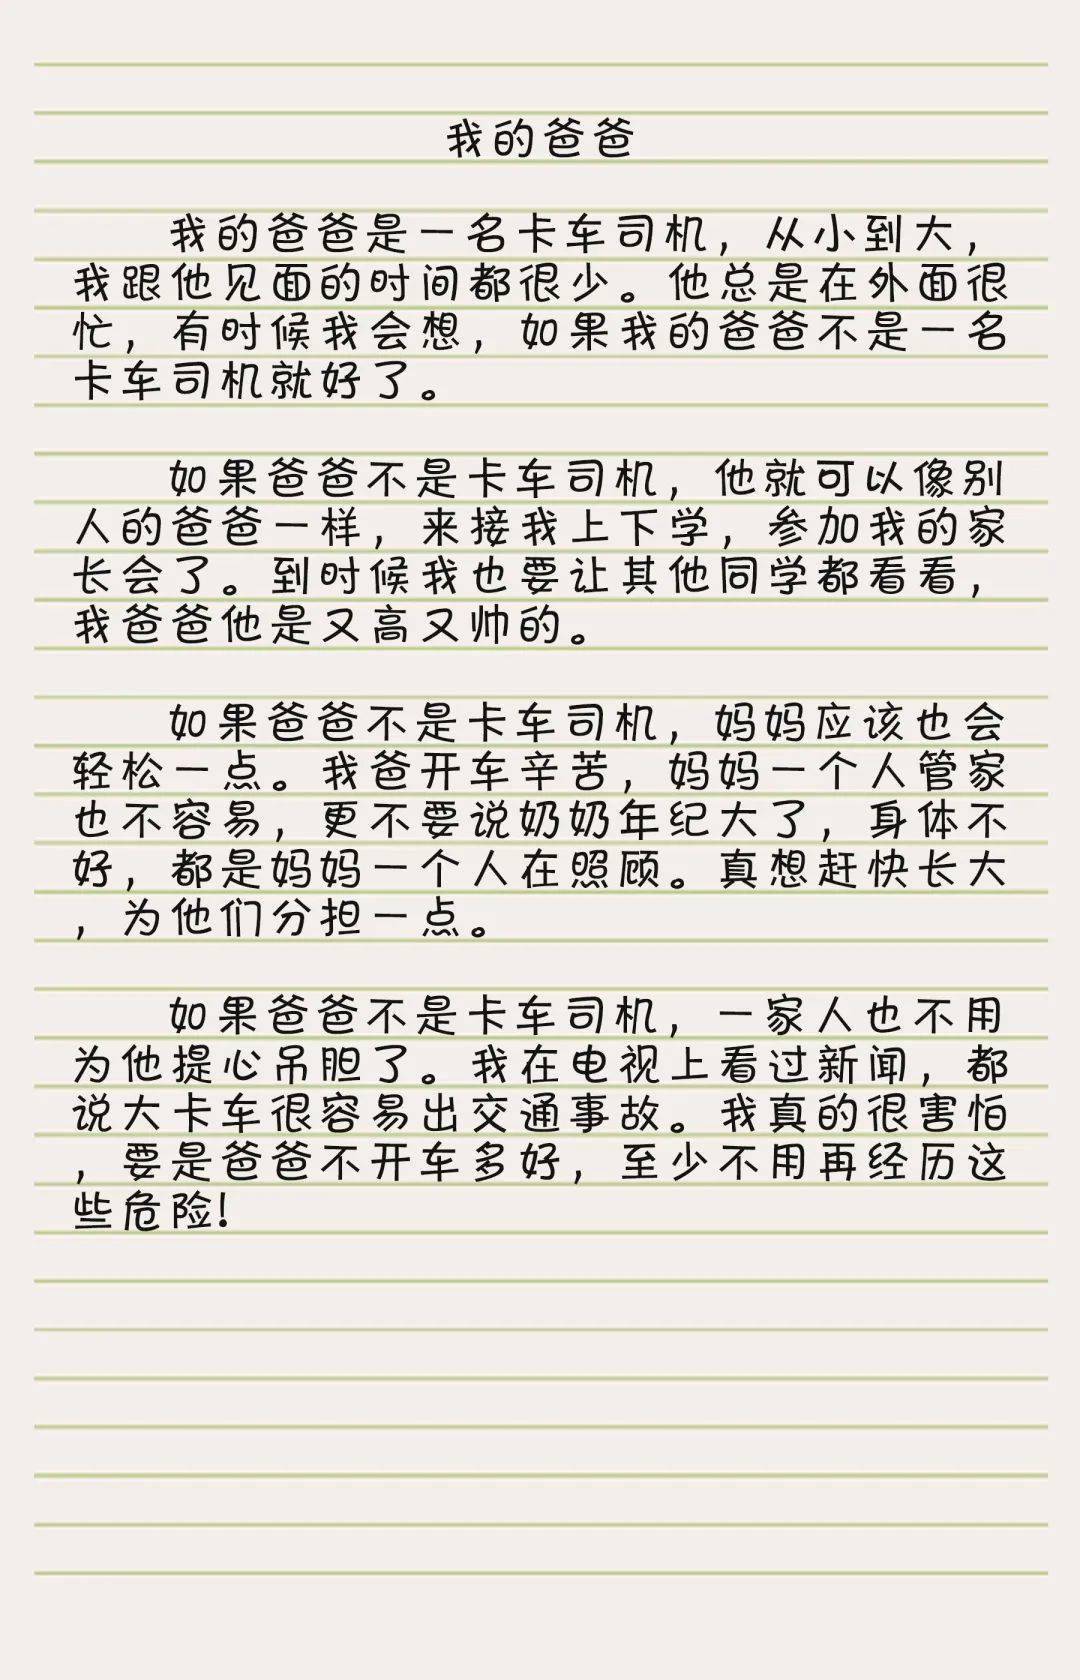 我的爸爸
我的爸爸是一名卡车司机，从小到大，
我跟他见面的时间都很少。他总是在外面很
忙，有时候我会想，如果我的爸爸不是一名
卡车司机就好了。
如果爸爸不是卡车司机，他就可以像别
人的爸爸一样，来接我上下学，参加我的家
长会了。到时候我也要让其他同学都看看，
我爸爸他是又高又帅的。
如果爸爸不是卡车司机，妈妈应该也会
轻松一点。我爸开车辛苦，妈妈一个人管家
也不容易，更不要说奶奶年纪大了，身体不
好，都是妈妈一个人在照顾。真想赶快长大
，为他们分担一点。
如果爸爸不是卡车司机，一家人也不用
为他提心吊胆了。我在电视上看过新闻，都
说大卡车很容易出交通事故。我真的很害怕
，要是爸爸不开车多好，至少不用再经历这
些危险!